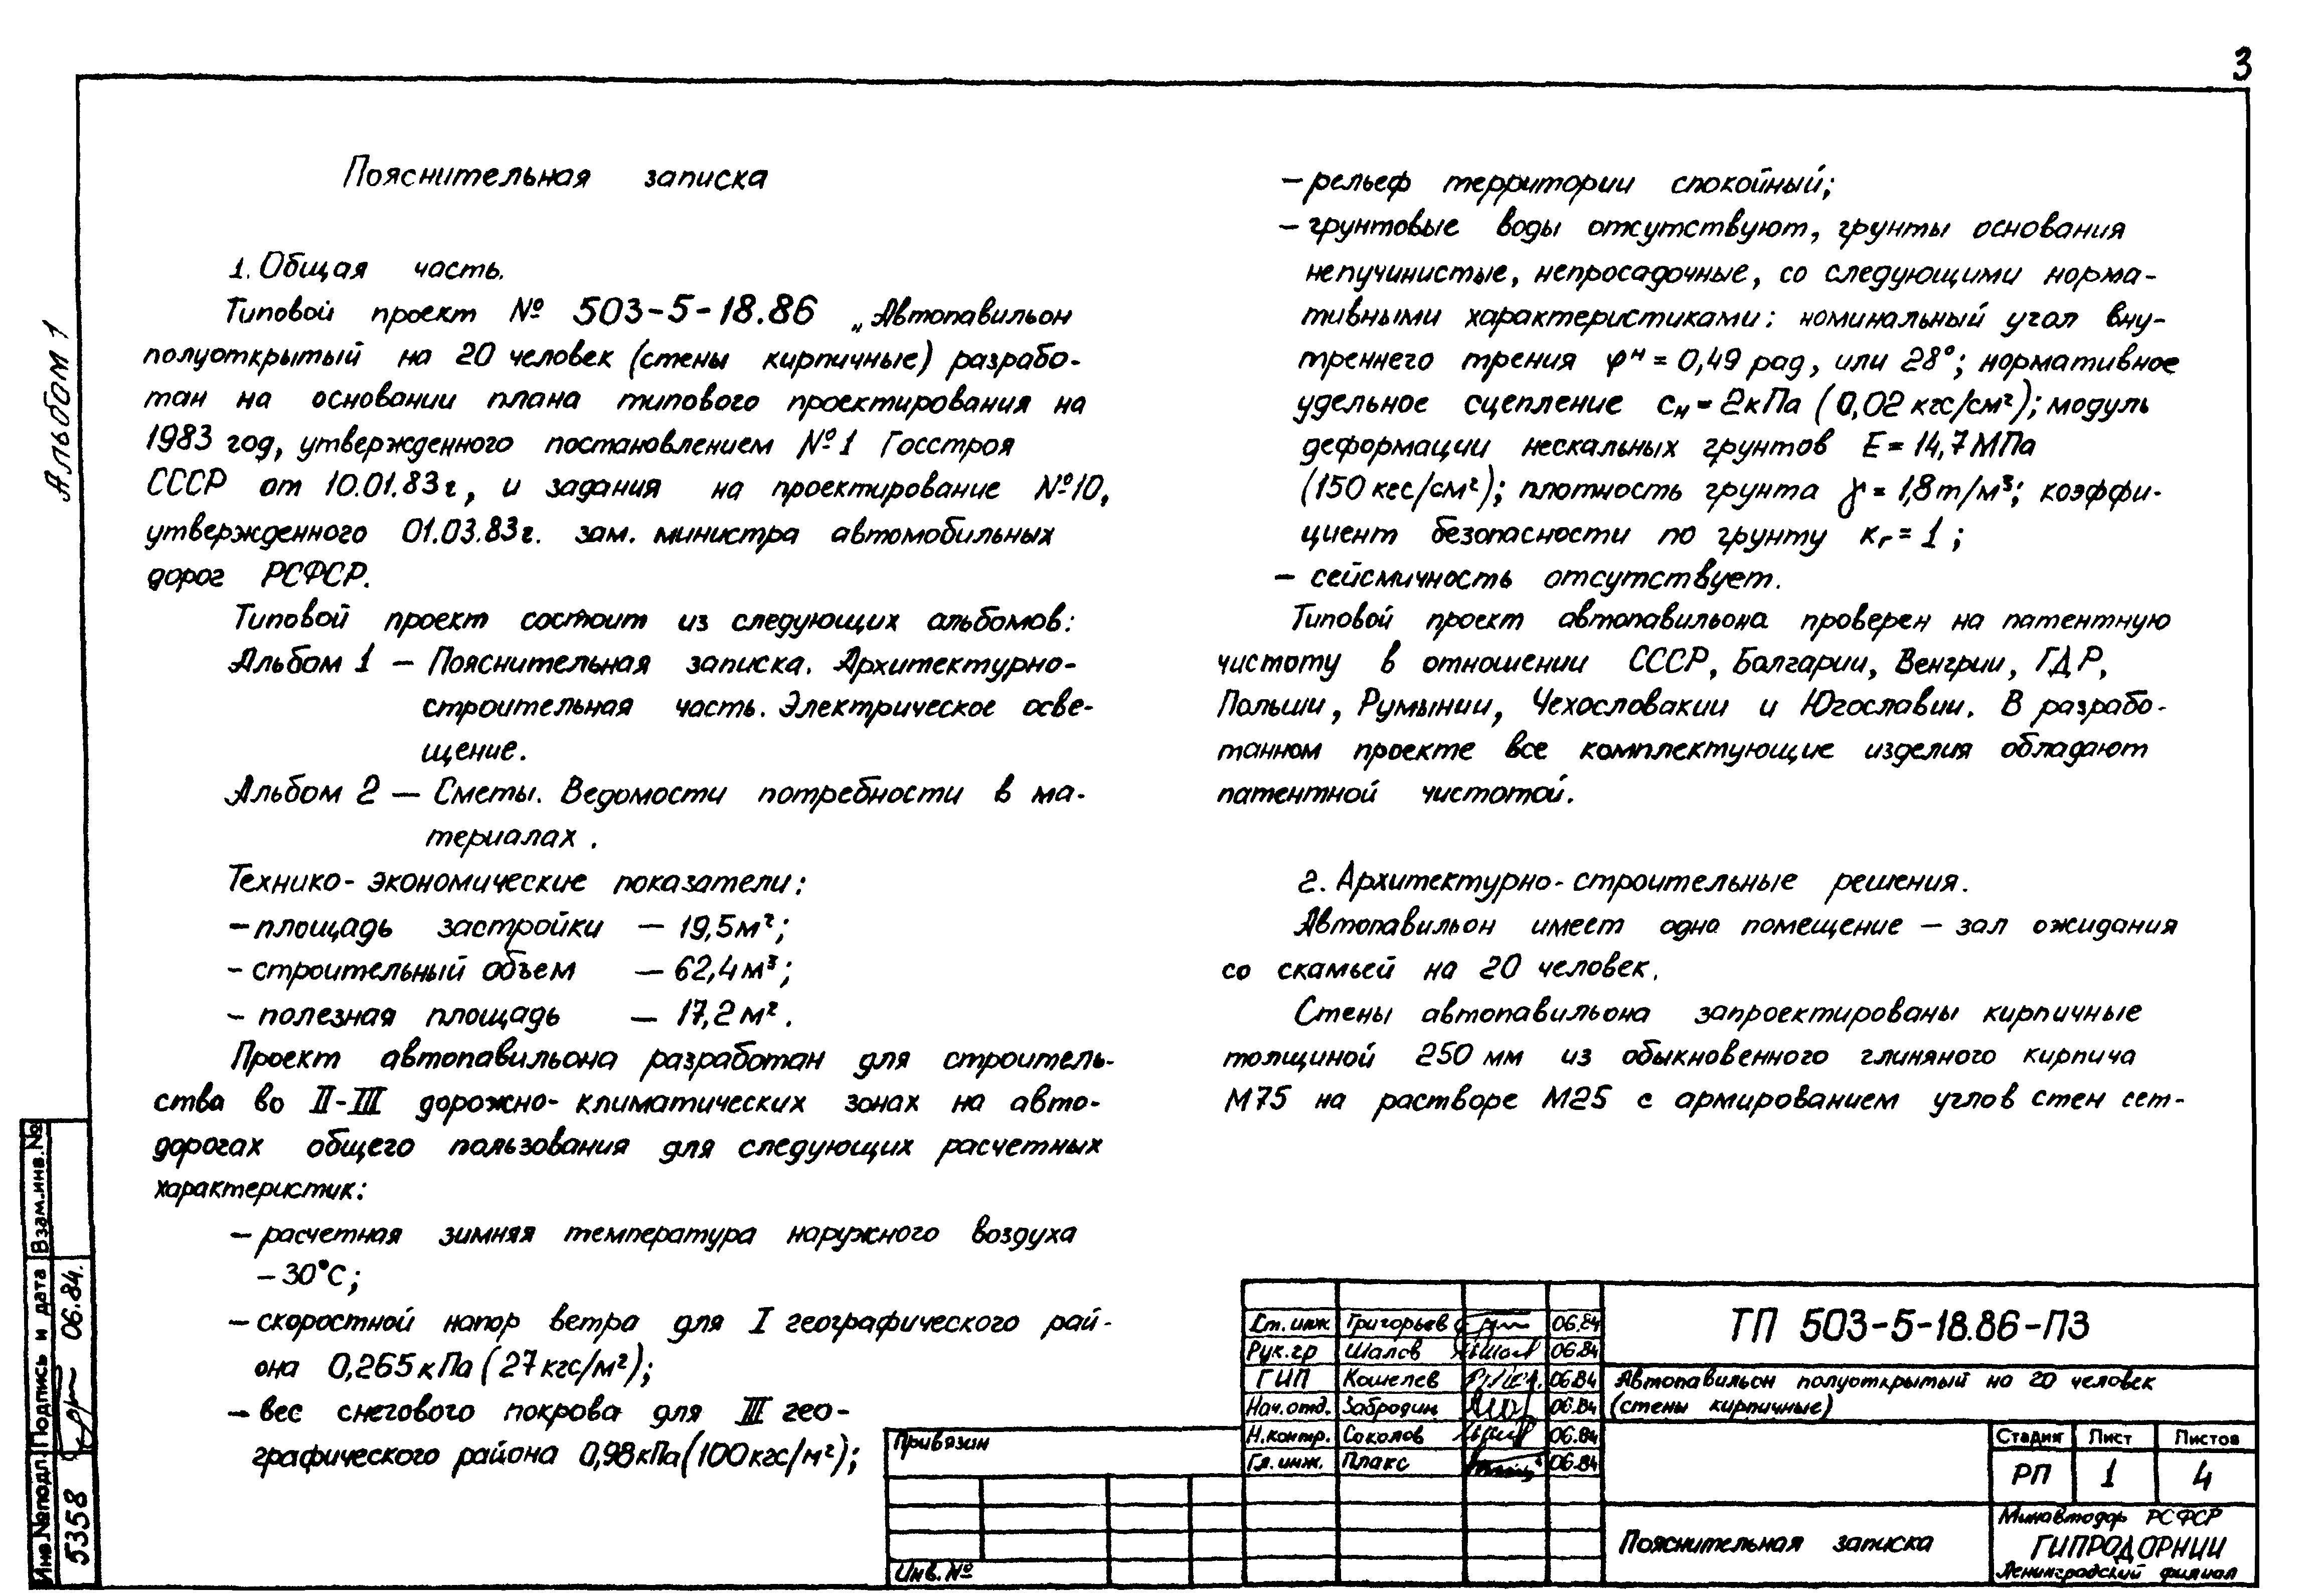 3
Альбом 1
Пояснительная записка
1. Общая часть.
Типовой проект № 503-5-18.86 „Автопавильон
полуоткрытый на 20 человек (стены кирпичные) разрабо-
тан на основании плана типового проектирования на
1983 год, утвержденного постановлением №1 Госстроя
СССР от 10.01.83г, и задания на проектирование №10,
утвержденного 01.03.83г. зам. министра автомобильных
дорог РСФСР.
Типовой проект состоит из следующих альбомов:
Альбом 1 – Пояснительная записка. Архитектурно-
строительная часть. Электрическое осве-
щение.
Альбом 2 – Сметы. Ведомости потребности в ма-
териалах.
Технико-экономические показатели:
– площадь застройки – 19,5м²;
– строительный объем – 62,4м³;
– полезная площадь – 17,2м².
Проект автопавильона разработан для строитель-
ства во II-III дорожно-климатических зонах на авто-
дорогах общего пользования для следующих расчетных
характеристик:
– расчетная зимняя температура наружного воздуха
–30°С;
– скоростной напор ветра для I географического рай-
она 0,265кПа (27кгс/м²);
– вес снегового покрова для III гео-
графического района 0,98кПа(100кгс/м²);
– рельеф территории спокойный;
– грунтовые воды отсутствуют, грунты основания
непучинистые, непросадочные, со следующими норма-
тивными характеристиками: номинальный угол вну-
треннего трения φн = 0,49 рад, или 28°; нормативное
удельное сцепление сн = 2кПа (0,02кгс/см²); модуль
деформации нескальных грунтов Е = 14,7МПа
(150кгс/см²); плотность грунта γ = 1,8т/м³; коэффи-
циент безопасности по грунту кг = 1;
– сейсмичность отсутствует.
Типовой проект автопавильона проверен на патентную
чистоту в отношении СССР, Болгарии, Венгрии, ГДР,
Польши, Румынии, Чехословакии и Югославии. В разрабо-
танном проекте все комплектующие изделия обладают
патентной чистотой.
2. Архитектурно-строительные решения.
Автопавильон имеет одно помещение – зал ожидания
со скамьей на 20 человек.
Стены автопавильона запроектированы кирпичные
толщиной 250 мм из обыкновенного глиняного кирпича
М75 на растворе М25 с армированием углов стен сет-
Взам.инв.№
Подпись и дата 06.84.
Инв.№подл. 5358
Привязан
Инв.№
Ст. инж. Григорьев 06.84
Рук.гр Шалов 06.84
ГИП Кошелев 06.84
Нач.отд. Забродин 06.84
Н.контр. Соколов 06.84
Гл.инж. Плакс 06.84
ТП 503-5-18.86-ПЗ
Автопавильон полуоткрытый на 20 человек
(стены кирпичные)
Стадия Лист Листов
РП 1 4
Пояснительная записка
Минавтодор РСФСР
ГИПРОДОРНИИ
Ленинградский филиал